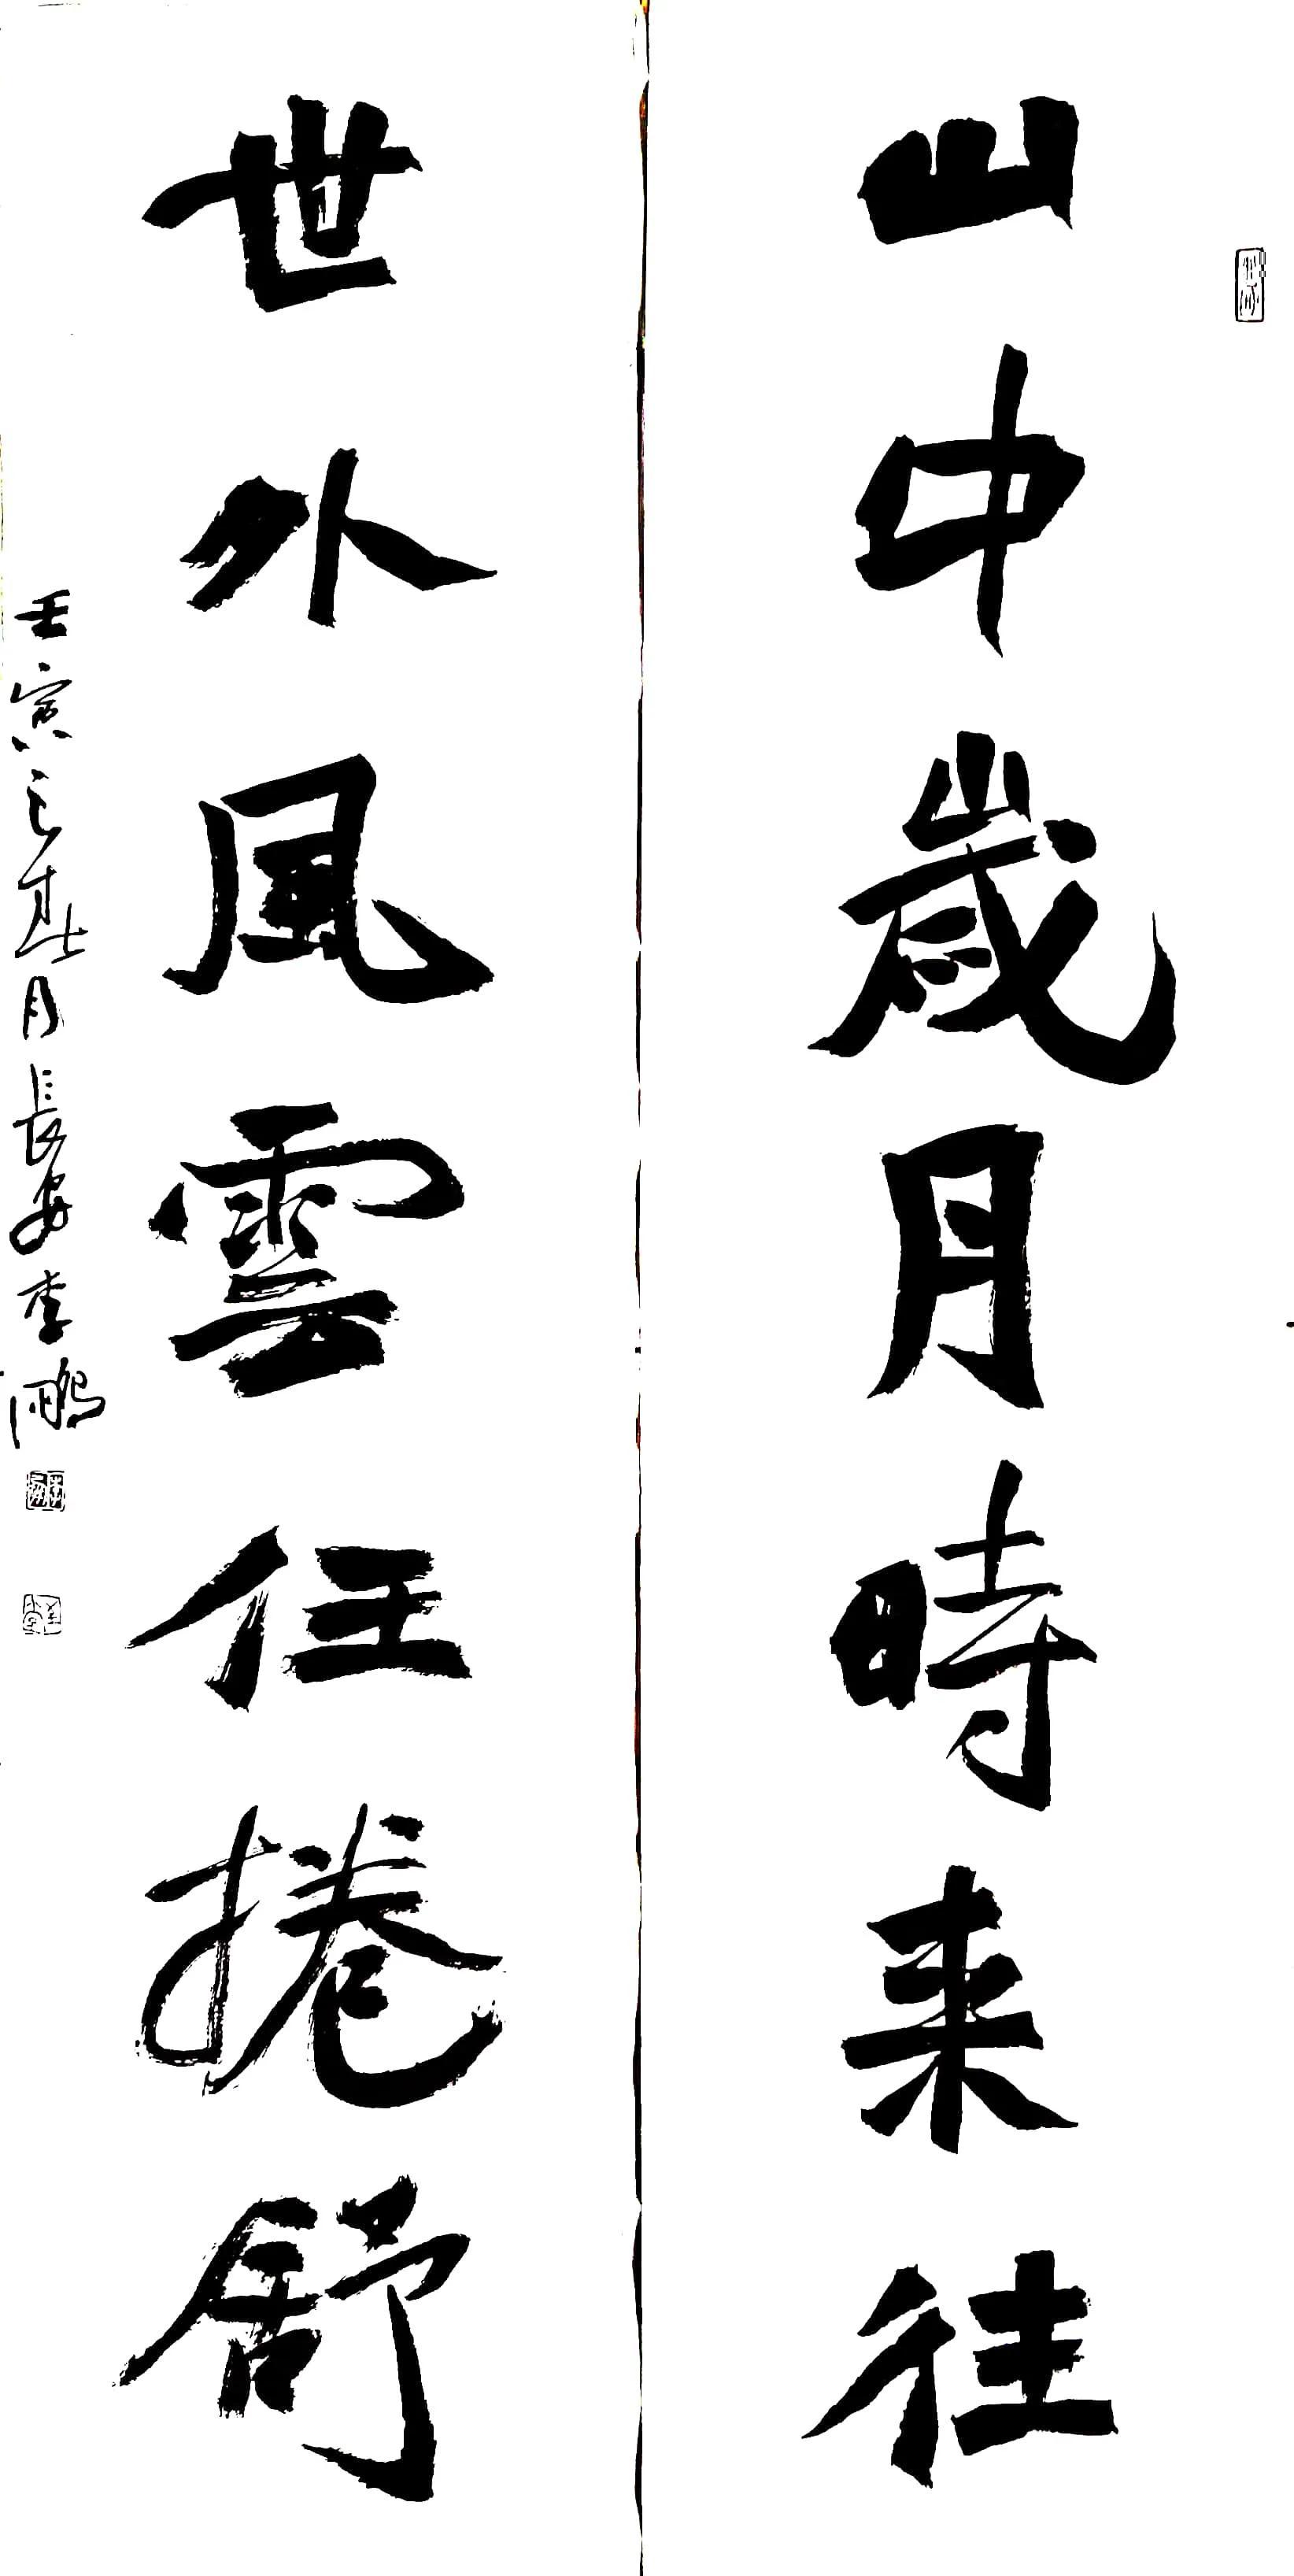 山中歲月時来往
世外風雲任捲舒
壬寅之春月長安李鵬